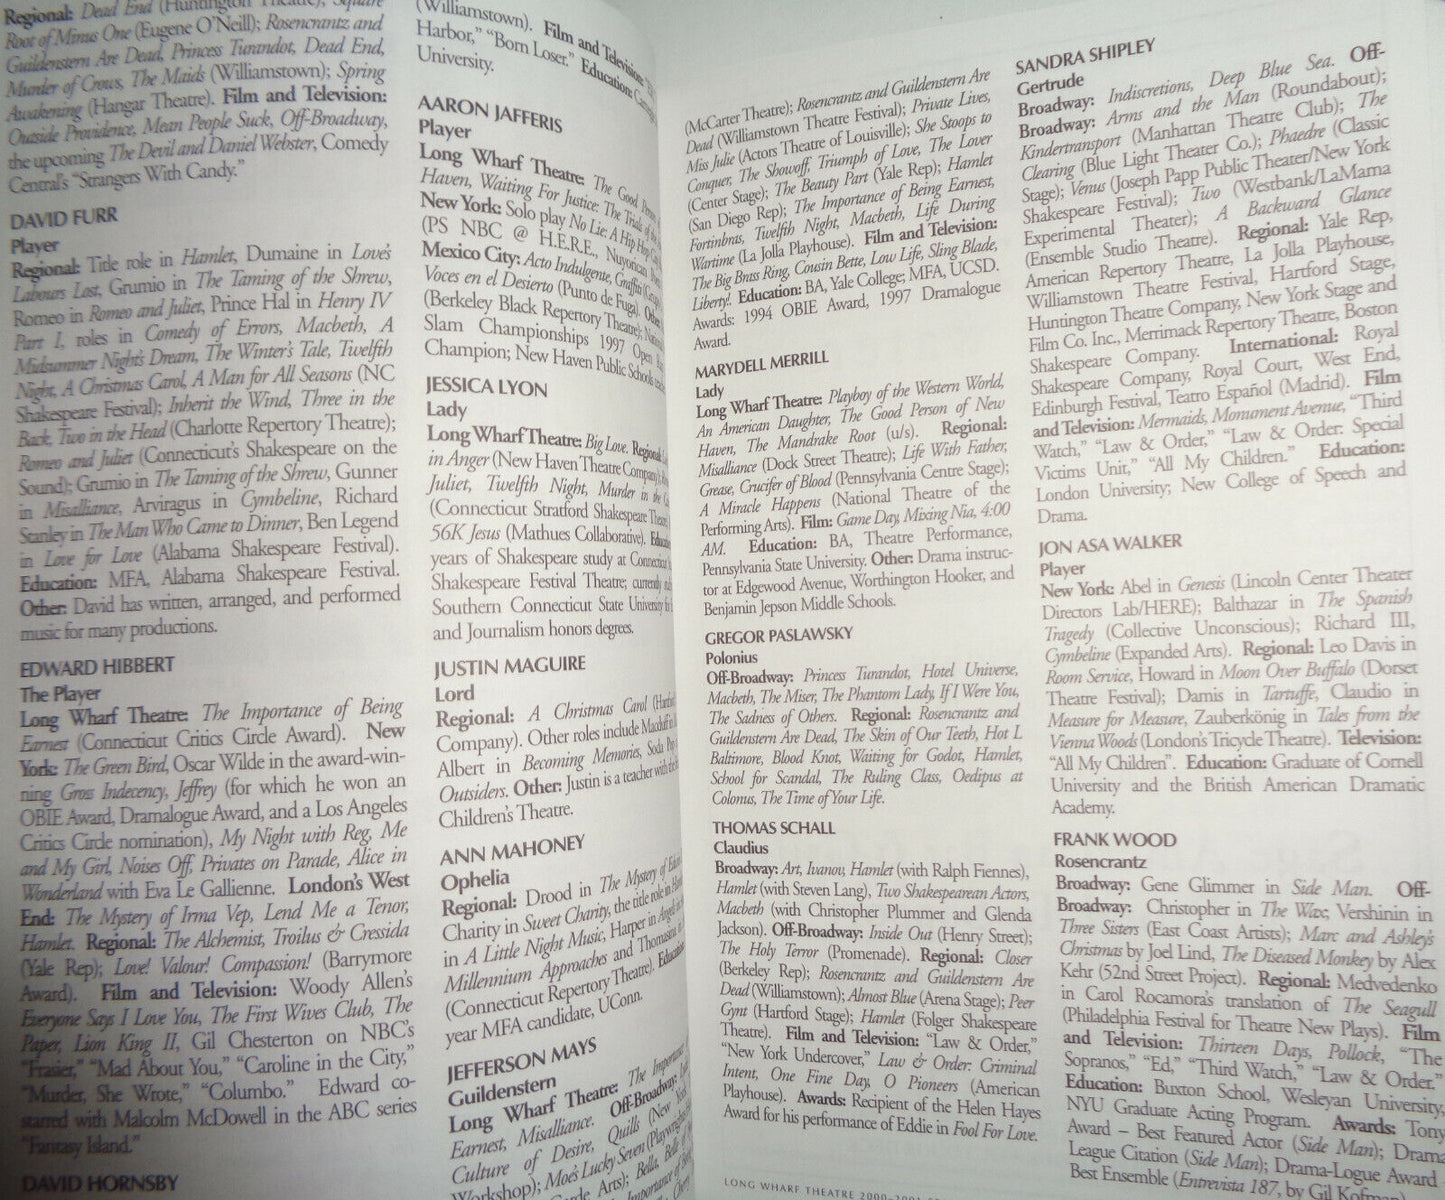 Regional: Dead End (Huntington Theatre); Square
Root of Minus One (Eugene O'Neill); Rosencrantz and
Guildenstern Are Dead, Princess Turandot, Dead End,
Murder of Crows, The Maids (Williamstown); Spring
Awakening (Hangar Theatre). Film and Television:
Outside Providence, Mean People Suck, Off-Broadway,
the upcoming The Devil and Daniel Webster, Comedy
Central's "Strangers With Candy."
DAVID FURR
Player
Regional: Title role in Hamlet, Dumaine in Love's
Labours Lost, Grumio in The Taming of the Shrew,
Romeo in Romeo and Juliet, Prince Hal in Henry IV
Part I, roles in Comedy of Errors, Macbeth, A
Midsummer Night's Dream, The Winter's Tale, Twelfth
Night, A Christmas Carol, A Man for All Seasons (NC
Shakespeare Festival); Inherit the Wind, Three in the
Back, Two in the Head (Charlotte Repertory Theatre);
Romeo and Juliet (Connecticut's Shakespeare on the
Sound); Grumio in The Taming of the Shrew, Gunner
in Misalliance, Arviragus in Cymbeline, Richard
Stanley in The Man Who Came to Dinner, Ben Legend
in Love for Love (Alabama Shakespeare Festival).
Education: MFA, Alabama Shakespeare Festival.
Other: David has written, arranged, and performed
music for many productions.
EDWARD HIBBERT
The Player
Long Wharf Theatre: The Importance of Being
Earnest (Connecticut Critics Circle Award). New
York: The Green Bird, Oscar Wilde in the award-win-
ning Gross Indecency, Jeffrey (for which he won an
OBIE Award, Dramalogue Award, and a Los Angeles
Critics Circle nomination), My Night with Reg, Me
and My Girl, Noises Off, Privates on Parade, Alice in
Wonderland with Eva Le Gallienne. London's West
End: The Mystery of Irma Vep, Lend Me a Tenor,
Hamlet. Regional: The Alchemist, Troilus & Cressida
(Yale Rep); Love! Valour! Compassion! (Barrymore
Award). Film and Television: Woody Allen's
Everyone Says I Love You, The First Wives Club, The
Paper, Lion King II, Gil Chesterton on NBC's
"Frasier," "Mad About You," "Caroline in the City,"
"Murder, She Wrote," "Columbo." Edward co-
starred with Malcolm McDowell in the ABC series
"Fantasy Island."
DAVID HORNSBY
(Williamstown). Film and Television:
Harbor," "Born Loser." Education:
University.
AARON JAFFERIS
Player
Long Wharf Theatre: The Good Person of
Haven, Waiting For Justice: The Trials of
New York: Solo play No Lie: A Hip Hop
(PS NBC @ H.E.R.E., Nuyorican
Mexico City: Acto Indulgente, Graffiti
Voces en el Desierto (Punto de Fuga). Other:
(Berkeley Black Repertory Theatre);
Slam Championships 1997 Open
Champion; New Haven Public Schools
JESSICA LYON
Lady
Long Wharf Theatre: Big Love. Regional:
in Anger (New Haven Theatre Company);
Juliet, Twelfth Night, Murder in the
(Connecticut Stratford Shakespeare
56K Jesus (Mathues Collaborative).
years of Shakespeare study at Connecticut
Shakespeare Festival Theatre; currently
Southern Connecticut State University
and Journalism honors degrees.
JUSTIN MAGUIRE
Lord
Regional: A Christmas Carol
Company). Other roles include Macduff in
Albert in Becoming Memories, Soda Pop
Outsiders. Other: Justin is a teacher with
Children's Theatre.
ANN MAHONEY
Ophelia
Regional: Drood in The Mystery of
Charity in Sweet Charity, the title role in
in A Little Night Music, Harper in Angels in
Millennium Approaches and Thomasina
(Connecticut Repertory Theatre). Education:
year MFA candidate, UConn.
JEFFERSON MAYS
Guildenstern
Long Wharf Theatre: The Importance
Earnest, Misalliance. Off-Broadway:
Culture of Desire, Quills (New York
Workshop); Moe's Lucky Seven (Playwrights
Arts); Bella, Belle of
Importance of Being
(McCarter Theatre); Rosencrantz and Guildenstern Are
Dead (Williamstown Theatre Festival); Private Lives,
Miss Julie (Actors Theatre of Louisville); She Stoops to
Conquer, The Showoff, Triumph of Love, The Lover
(Center Stage); The Beauty Part (Yale Rep); Hamlet
(San Diego Rep); The Importance of Being Earnest,
Fortinbras, Twelfth Night, Macbeth, Life During
Wartime (La Jolla Playhouse). Film and Television:
The Big Brass Ring, Cousin Bette, Low Life, Sling Blade,
Liberty!. Education: BA, Yale College; MFA, UCSD.
Awards: 1994 OBIE Award, 1997 Dramalogue
Award.
MARYDELL MERRILL
Lady
Long Wharf Theatre: Playboy of the Western World,
An American Daughter, The Good Person of New
Haven, The Mandrake Root (u/s). Regional:
Misalliance (Dock Street Theatre); Life With Father,
Grease, Crucifer of Blood (Pennsylvania Centre Stage);
A Miracle Happens (National Theatre of the
Performing Arts). Film: Game Day, Mixing Nia, 4:00
AM. Education: BA, Theatre Performance,
Pennsylvania State University. Other: Drama instruc-
tor at Edgewood Avenue, Worthington Hooker, and
Benjamin Jepson Middle Schools.
GREGOR PASLAWSKY
Polonius
Off-Broadway: Princess Turandot, Hotel Universe,
Macbeth, The Miser, The Phantom Lady, If I Were You,
The Sadness of Others. Regional: Rosencrantz and
Guildenstern Are Dead, The Skin of Our Teeth, Hot L
Baltimore, Blood Knot, Waiting for Godot, Hamlet,
School for Scandal, The Ruling Class, Oedipus at
Colonus, The Time of Your Life.
THOMAS SCHALL
Claudius
Broadway: Art, Ivanov, Hamlet (with Ralph Fiennes),
Hamlet (with Steven Lang), Two Shakespearean Actors,
Macbeth (with Christopher Plummer and Glenda
Jackson). Off-Broadway: Inside Out (Henry Street);
The Holy Terror (Promenade). Regional: Closer
(Berkeley Rep); Rosencrantz and Guildenstern Are
Dead (Williamstown); Almost Blue (Arena Stage); Peer
Gynt (Hartford Stage); Hamlet (Folger Shakespeare
Theatre). Film and Television: "Law & Order,"
"New York Undercover," Law & Order: Criminal
Intent, One Fine Day, O Pioneers (American
Playhouse). Awards: Recipient of the Helen Hayes
Award for his performance of Eddie in Fool For Love.
SANDRA SHIPLEY
Gertrude
Broadway: Indiscretions, Deep Blue Sea. Off-
Broadway: Arms and the Man (Roundabout);
Kindertransport (Manhattan Theatre Club); The
Clearing (Blue Light Theater Co.); Phaedre (Classic
Stage); Venus (Joseph Papp Public Theater/New York
Shakespeare Festival); Two (Westbank/LaMama
Experimental Theater); A Backward Glance
(Ensemble Studio Theatre). Regional: Yale Rep,
American Repertory Theatre, La Jolla Playhouse,
Williamstown Theatre Festival, Hartford Stage,
Huntington Theatre Company, New York Stage and
Film Co. Inc., Merrimack Repertory Theatre, Boston
Shakespeare Company. International: Royal
Shakespeare Company, Royal Court, West End,
Edinburgh Festival, Teatro Español (Madrid). Film
and Television: Mermaids, Monument Avenue, "Third
Watch," "Law & Order," "Law & Order: Special
Victims Unit," "All My Children." Education:
London University; New College of Speech and
Drama.
JON ASA WALKER
Player
New York: Abel in Genesis (Lincoln Center Theater
Directors Lab/HERE); Balthazar in The Spanish
Tragedy (Collective Unconscious); Richard III,
Cymbeline (Expanded Arts). Regional: Leo Davis in
Room Service, Howard in Moon Over Buffalo (Dorset
Theatre Festival); Damis in Tartuffe, Claudio in
Measure for Measure, Zauberkönig in Tales from the
Vienna Woods (London's Tricycle Theatre). Television:
"All My Children". Education: Graduate of Cornell
University and the British American Dramatic
Academy.
FRANK WOOD
Rosencrantz
Broadway: Gene Glimmer in Side Man. Off-
Broadway: Christopher in The Wax; Vershinin in
Three Sisters (East Coast Artists); Marc and Ashley's
Christmas by Joel Lind, The Diseased Monkey by Alex
Kehr (52nd Street Project). Regional: Medvedenko
in Carol Rocamora's translation of The Seagull
(Philadelphia Festival for Theatre New Plays). Film
and Television: Thirteen Days, Pollock, "The
Sopranos," "Ed," "Third Watch," "Law & Order."
Education: Buxton School, Wesleyan University,
NYU Graduate Acting Program. Awards: Tony
Award – Best Featured Actor (Side Man); Drama
League Citation (Side Man); Drama-Logue Award
Best Ensemble (Entrevista 187, by Gil
LONG WHARF THEATRE 2000-2001